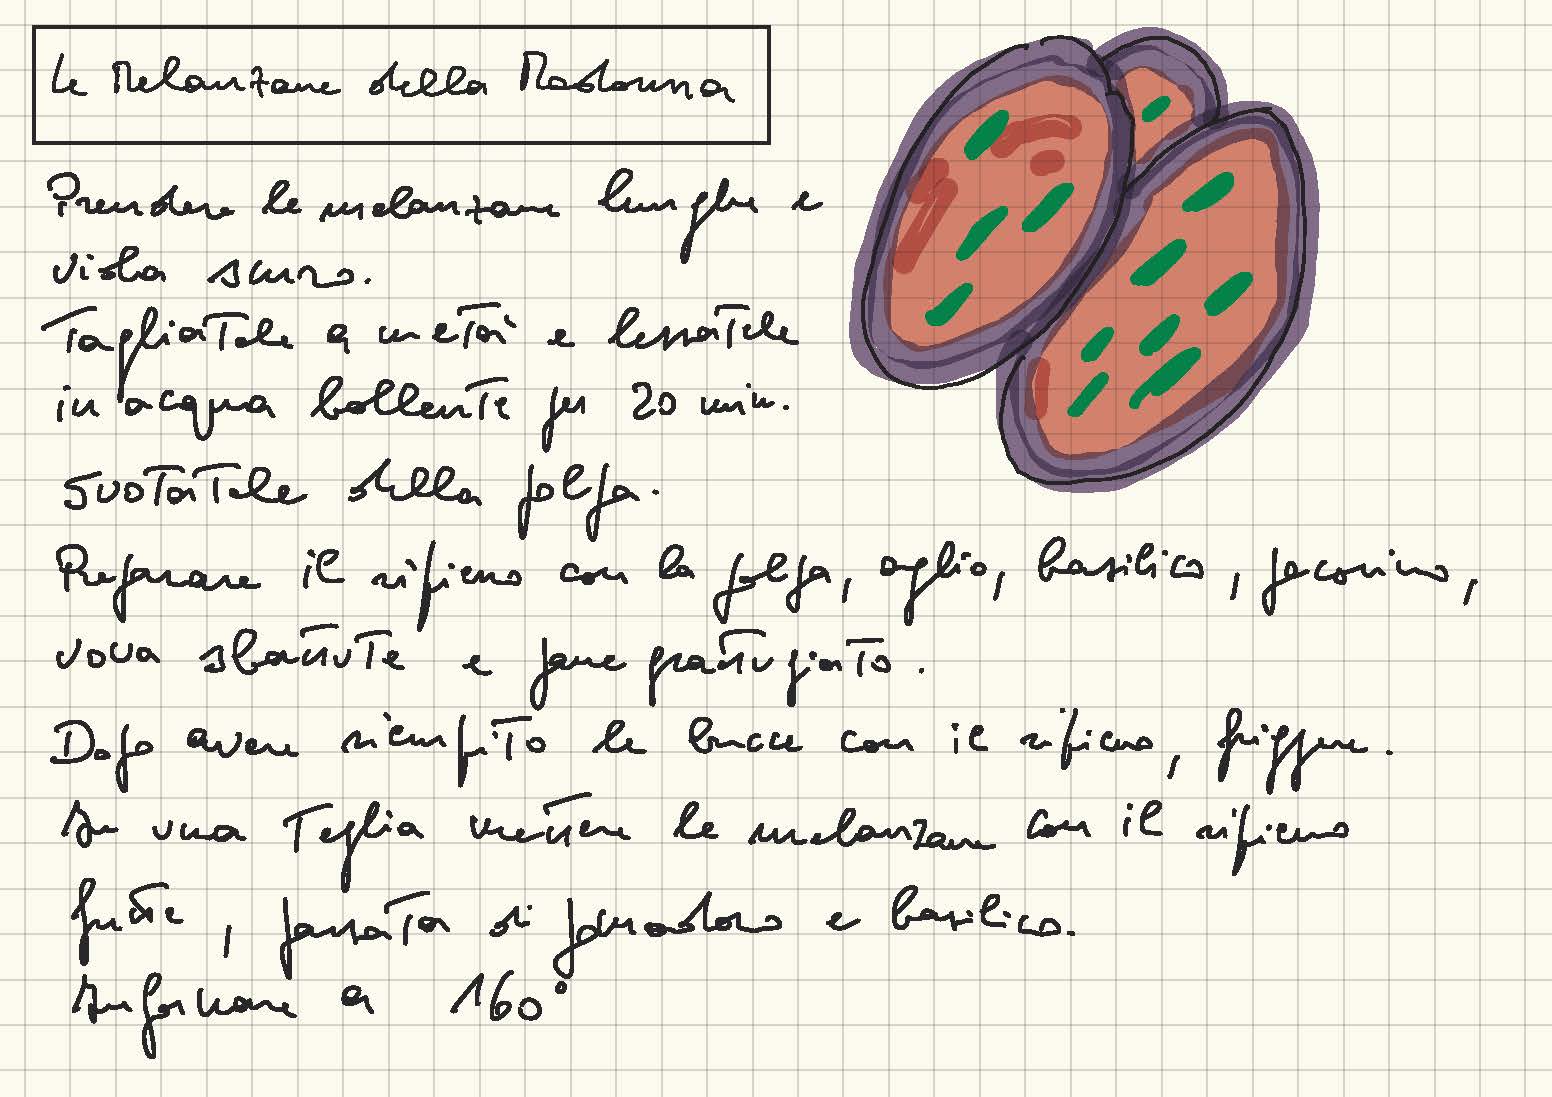 Le Melanzane della Madonna
Prendere le melanzane lunghe e
viola scuro.
Tagliatele a metà e lessatele
in acqua bollente per 20 min.
Svotatele della polpa.
Preparare il ripieno con la polpa, aglio, basilico, pecorino,
uova sbattute e pane grattugiato.
Dopo avere riempito le bucce con il ripieno, friggere.
In una teglia mettere le melanzane con il ripieno
fritte, passata di pomodoro e basilico.
Infornare a 160°